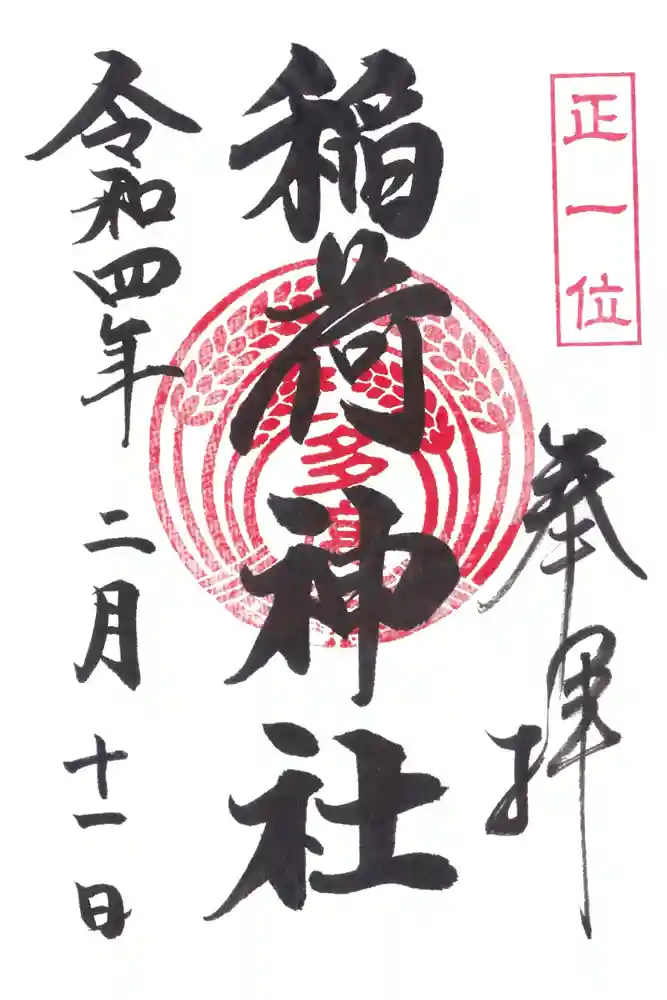 正一位
奉拝
稲荷神社
多
令和四年 二月 十一日